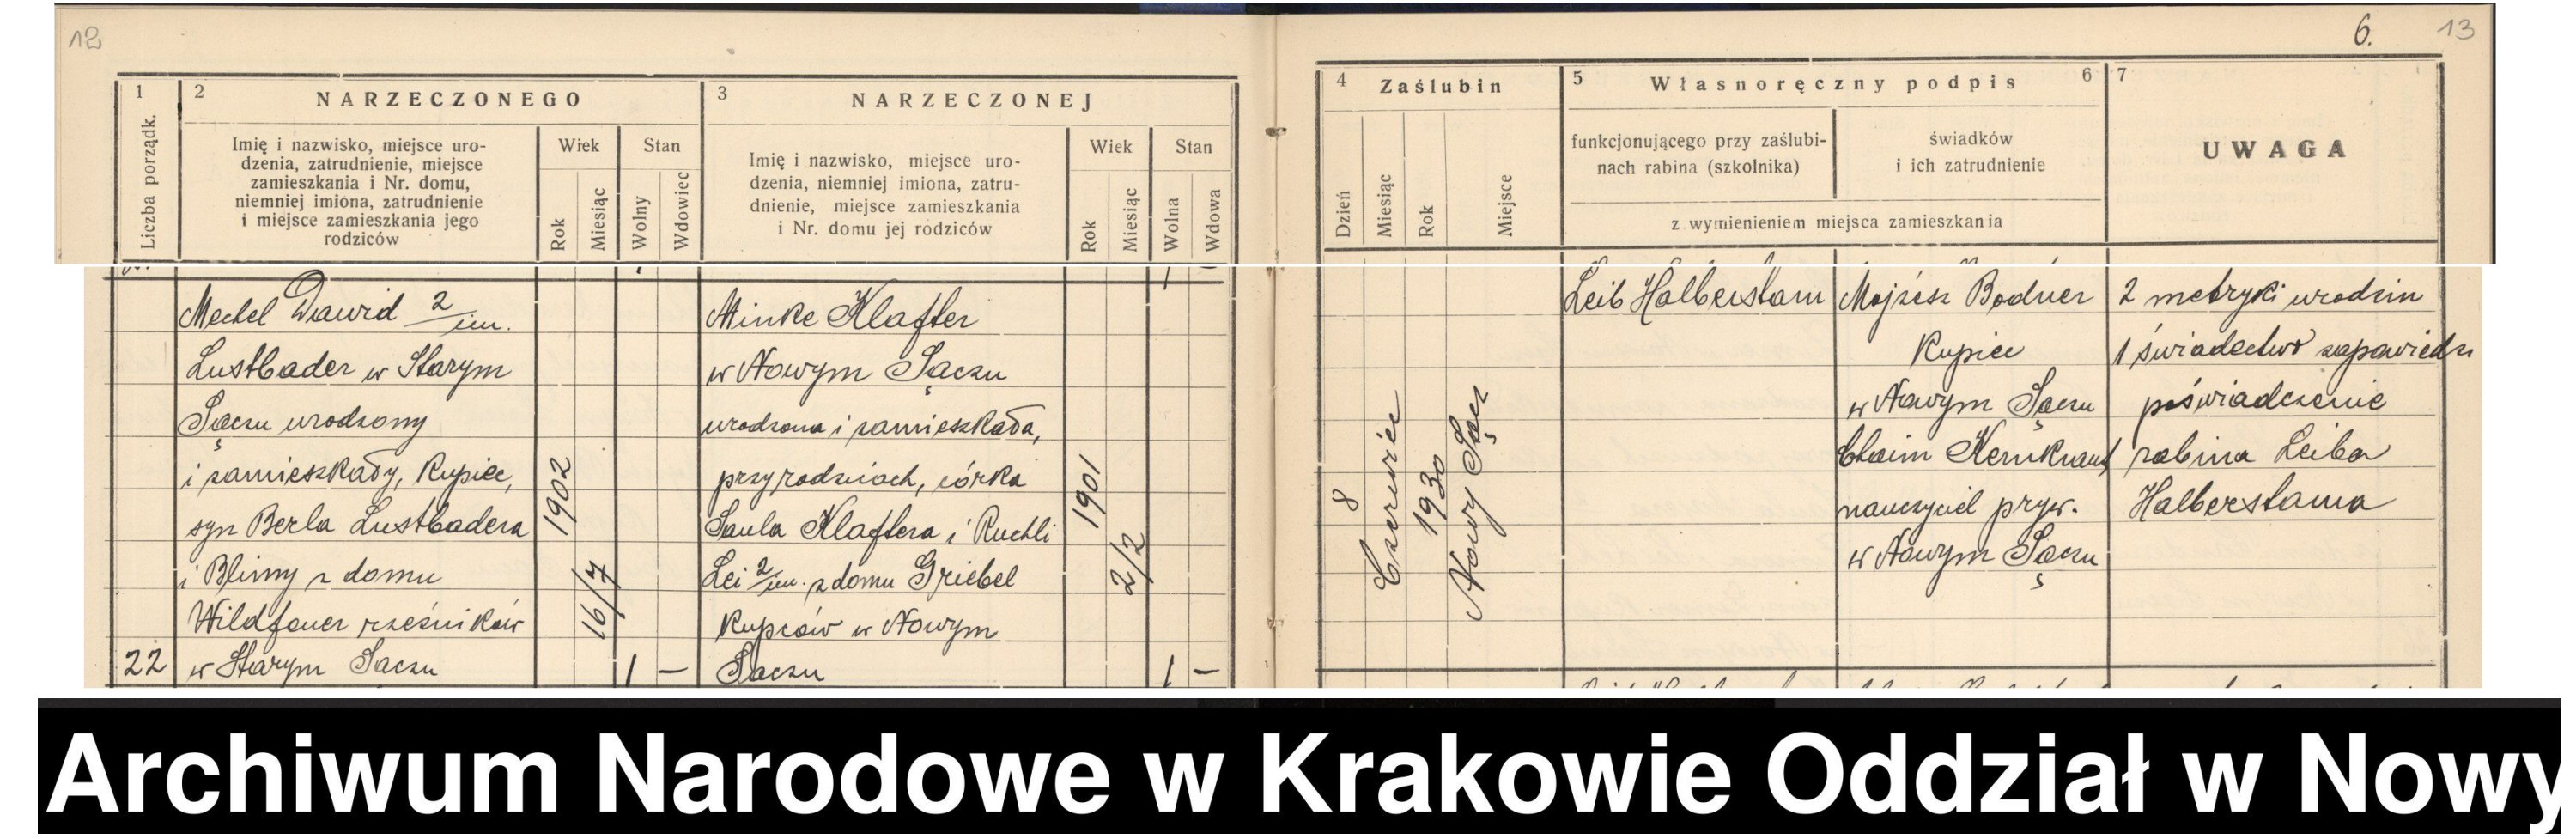 12
6. 13
1
Liczba porządk.
2
NARZECZONEGO
Imię i nazwisko, miejsce uro-
dzenia, zatrudnienie, miejsce
zamieszkania i Nr. domu,
niemniej imiona, zatrudnienie
i miejsce zamieszkania jego
rodziców
Wiek
Rok
Miesiąc
Stan
Wolny
Wdowiec
3
NARZECZONEJ
Imię i nazwisko, miejsce uro-
dzenia, niemniej imiona, zatru-
dnienie, miejsce zamieszkania
i Nr. domu jej rodziców
Wiek
Rok
Miesiąc
Stan
Wolna
Wdowa
4
Zaślubin
Dzień
Miesiąc
Rok
Miejsce
5 Własnoręczny podpis 6
funkcjonującego przy zaślubi-
nach rabina (szkolnika)
świadków
i ich zatrudnienie
z wymienieniem miejsca zamieszkania
7
UWAGA
22
Mechel Dawid 2/im.
Lustbader w Starym
Sączu urodzony
i zamieszkały, kupiec,
syn Berla Lustbadera
i Blimy z domu
Wildfeuer rzeźników
w Starym Sączu
1902
16/7
1 —
Minke Klafter
w Nowym Sączu
urodzona i zamieszkała,
przy rodzicach, córka
Saula Klaftera i Ruchli
Lei 2/im. z domu Griebel
kupców w Nowym
Sączu
1901
2/2
1 —
8
Czerwiec
1930
Nowy Sącz
Leib Halberstam
Mojżesz Bodner
kupiec
w Nowym Sączu
Chaim Kernkraut
nauczyciel pryw.
w Nowym Sączu
2 metryki urodzin
1 świadectwo zapowiedzi
poświadczenie
rabina Leiba
Halberstama
Archiwum Narodowe w Krakowie Oddział w Nowy